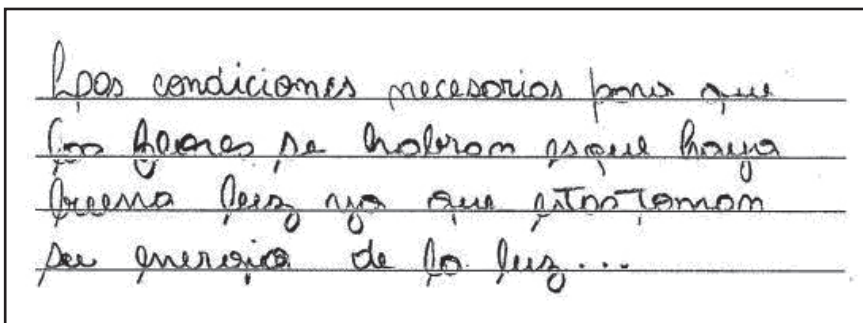 Las condiciones necesarias para que
las flores se habran es que haya
buena luz ya que estas toman
su energia de la luz...